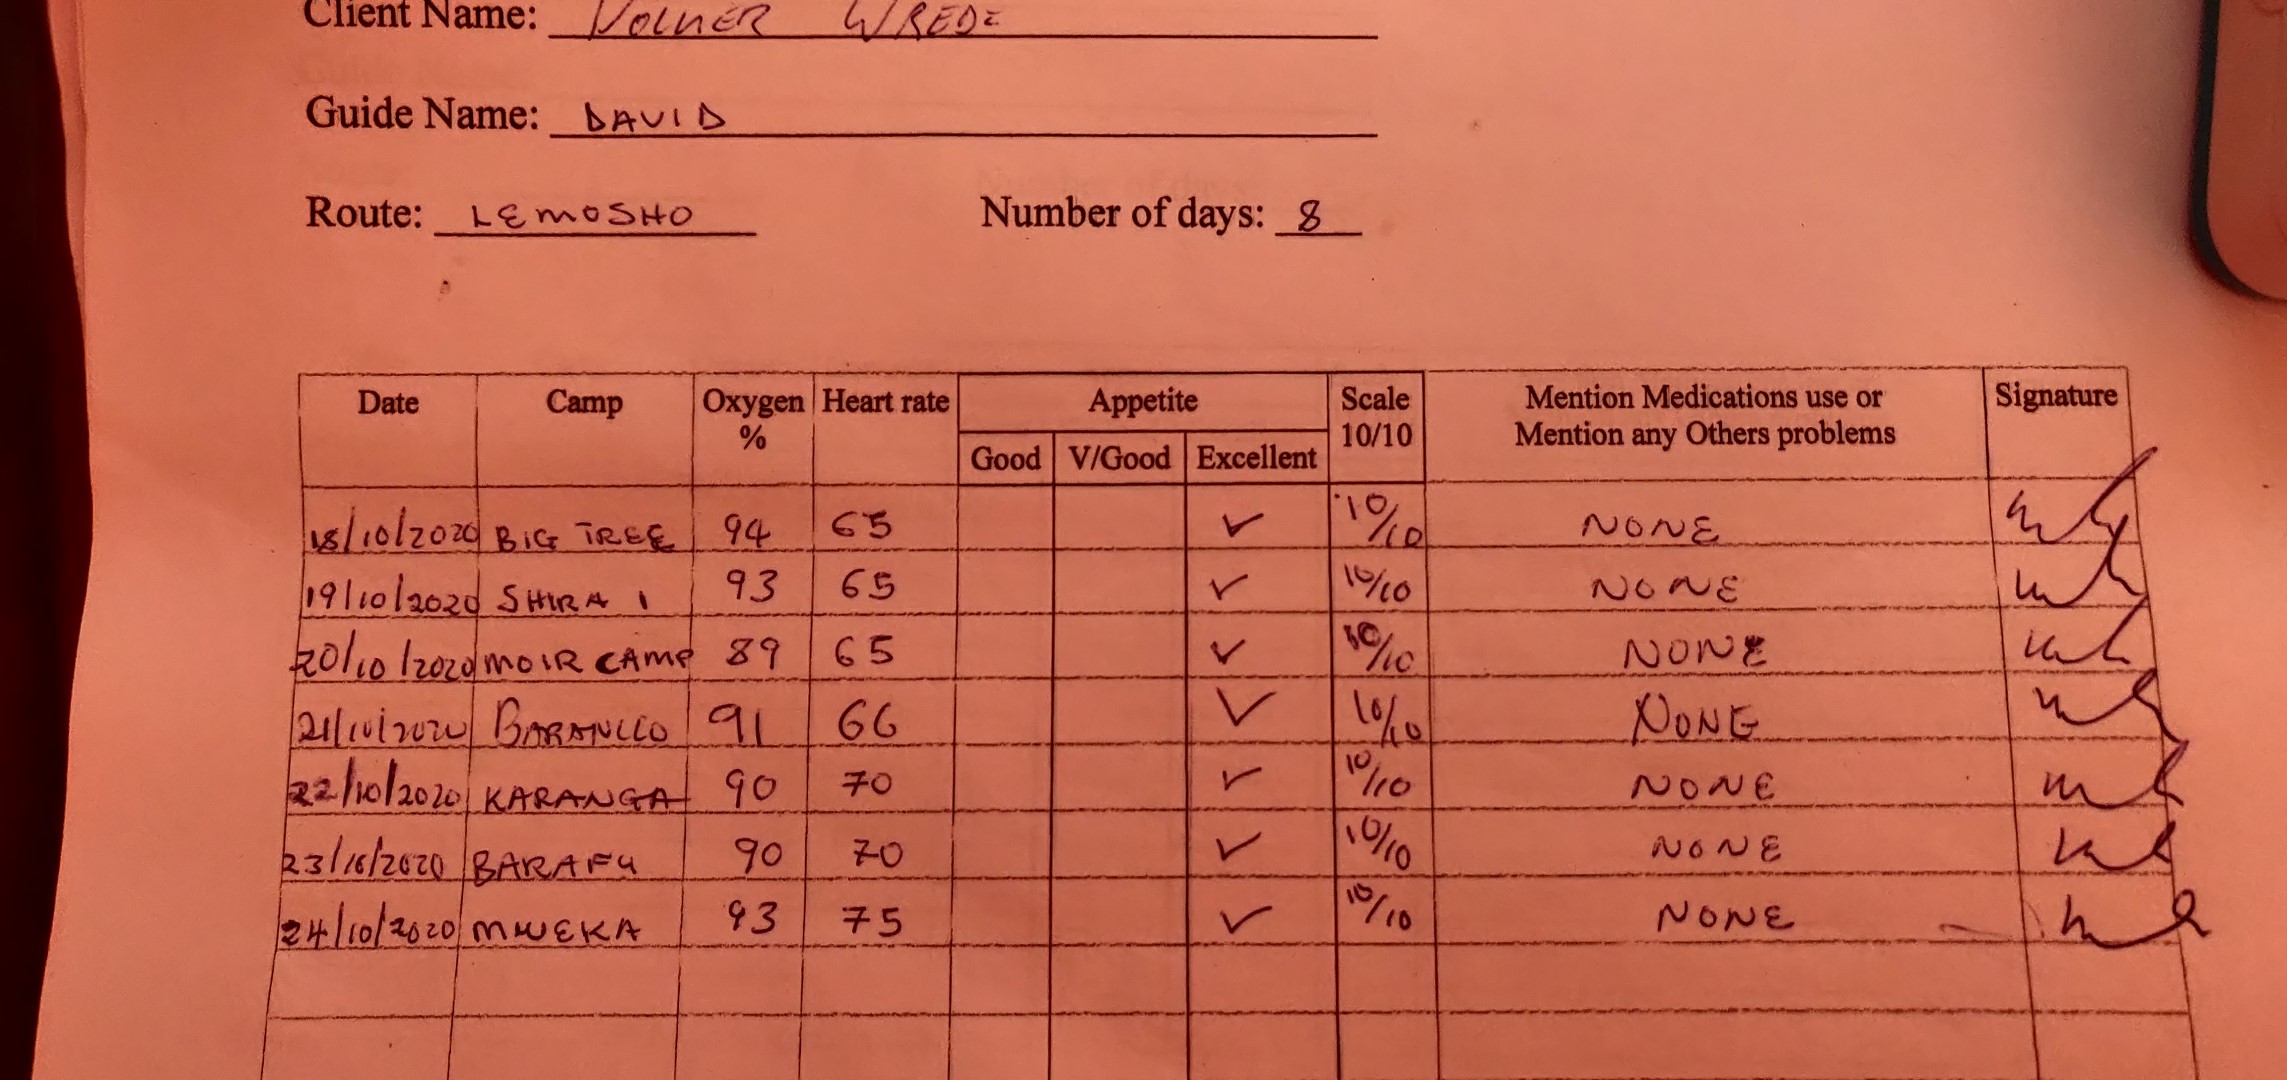 Client Name: VOLKER WREDE
Guide Name: DAVID
Route: LEMOSHO Number of days: 8
Date Camp Oxygen % Heart rate Appetite Scale 10/10 Mention Medications use or Mention any Others problems Signature
Good V/Good Excellent
18/10/2020 BIG TREE 94 65 ✓ 10/10 NONE
19/10/2020 SHIRA 1 93 65 ✓ 10/10 NONE
20/10/2020 MOIR CAMP 89 65 ✓ 10/10 NONE
21/10/2020 BARANCCO 91 66 ✓ 10/10 NONE
22/10/2020 KARANGA 90 70 ✓ 10/10 NONE
23/10/2020 BARAFU 90 70 ✓ 10/10 NONE
24/10/2020 MWEKA 93 75 ✓ 10/10 NONE